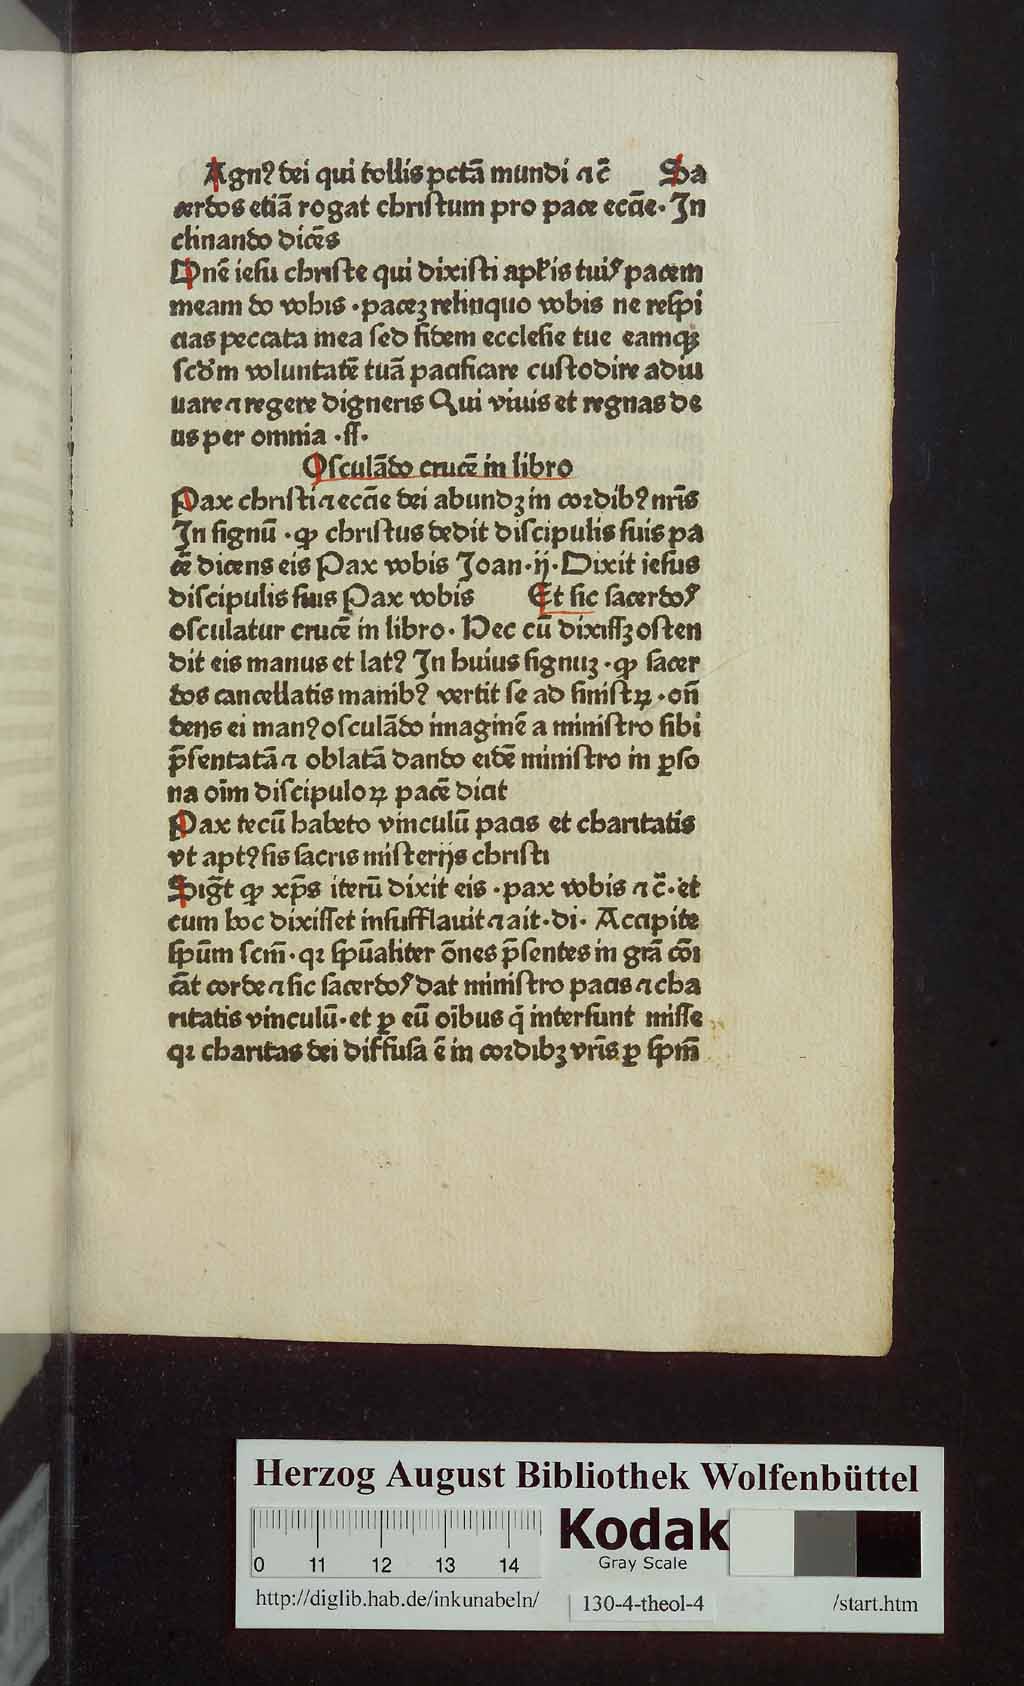 Agnꝰ dei qui tollis pctā mundi ⁊ c̄ Sa
cerdos etiā rogat christum pro pace eccīe· In
clinando dicēs
Dn̄e iesu christe qui dixisti apl̓is tuis pacem
meam do vobis · paceꝫ relinquo vobis ne respi
cias peccata mea sed fidem ecclesie tue eamqꝫ
scd̓m voluntatē tuā pacificare custodire adiu
uare ⁊ regere digneris Qui viuis et regnas de
us per omnia ·ss·
Osculādo crucē in libro
Pax christi ⁊ eccīe dei abundꝫ in cordibꝰ nr̄is
In signū · ꝙ christus dedit discipulis suis pa
cē dicens eis Pax vobis Joan·ij·Dixit iesus
discipulis suis Pax vobis Et sic sacerdos
osculatur crucē in libro· Hec cū dixissꝫ osten
dit eis manus et latꝰ In huius signuꝫ · ꝙ sacer
dos cancellatis manibꝰ vertit se ad sinistꝝ · on̄
dens ei manꝰ osculādo imaginē a ministro sibi
p̄sentatā ⁊ oblatā dando eidē ministro in ꝑso
na oīm discipuloꝝ pacē dicit
Pax tecū habeto vinculū pacis et charitatis
vt aptꝰ sis sacris misterijs christi
Sigt̄ ꝙ xp̄s iterū dixit eis · pax vobis ⁊ c̄· et
cum hoc dixisset insufflauit ⁊ ait·di· Accipite
spūm scm̄· qꝛ spūaliter ōnes p̄sentes in grā cōi
cāt corde ⁊ sic sacerdos dat ministro pacis ⁊ cha
ritatis vinculū·et ꝑ eū oībus q̄ intersunt misse
qꝛ charitas dei diffusa ē in cordibꝫ vr̄is ꝑ spm̄
Herzog August Bibliothek Wolfenbüttel
0 11 12 13 14 Kodak
Gray Scale
http://diglib.hab.de/inkunabeln/ 130-4-theol-4 /start.htm